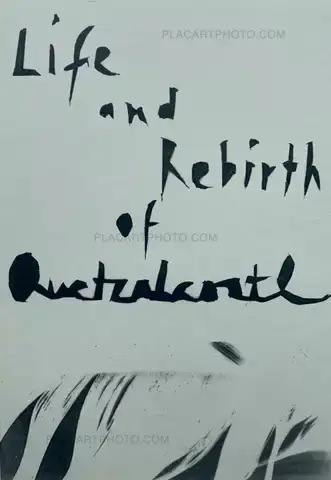 PLACARTPHOTO.COM
Life
and
Rebirth
of
PLACARTPHOTO.COM
Quetzalcoatl
PLACARTPHOTO.COM